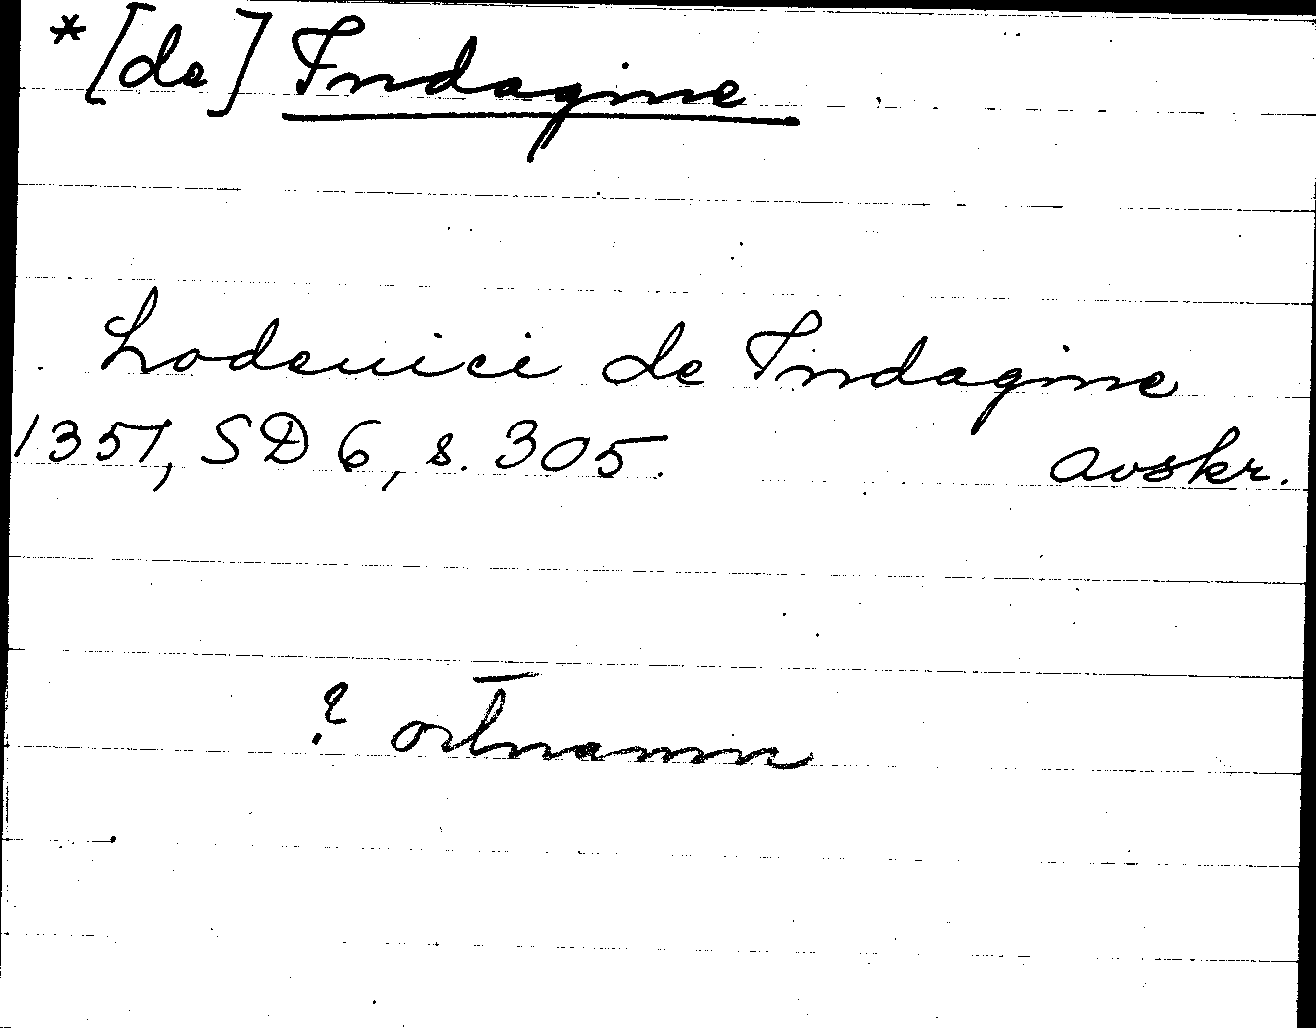 *[de] Indagine
Lodeuici de Indagine
1351, SD 6, s. 305. avskr.
? ortnamn